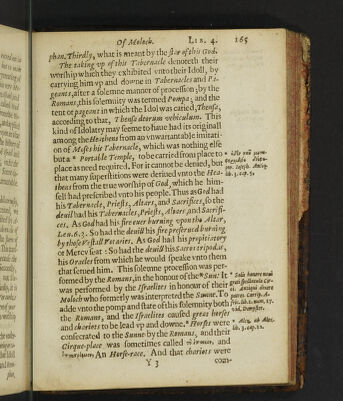 Of Moloch. LIB. 4. 165
phan. Thirdly, what is meant by the star of this God.
The taking up of this Tabernacle denoteth their
worship which they exhibited unto their Idoll, by
carrying him vp and downe in Tabernacles and Pa-
geants, after a solemne manner of procession; by the
Romans, this solemnity was termed Pompa; and the
tent or pageant in which the Idol was caried, Thensa,
according to that, Thensa deorum vehiculum. This
kind of Idolatry may seeme to haue had its originall
among the Heathens from an vnwarrantable imitati-
on of Moses his Tabernacle, which was nothing else
but a * Portable Temple, to be carried from place to
place as need required. For it cannot be denied, but
that many superstitions were deriued vnto the Hea-
thens from the true worship of God, which he him-
self had prescribed vnto his people. Thus as God had
his Tabernacle, Priests, Altars, and Sacrifices, so the
deuill had his Tabernacles, Priests, Altars, and Sacrifi-
ces. As God had his fire euer burning vpon the Altar,
Leu. 6. 13. So had the deuill his fire preserued burning
by those Vestall Votaries. As God had his propitiatory
or Mercy seat: So had the deuill his Sacros tripodas,
his Oracles from which he would speake vnto them
that serued him. This solemne procession was per-
formed by the Romans, in the honour of the * Sun: It
was performed by the Israelites in honour of their
Moloch who formerly was interpreted the Sunne. To
adde vnto the pomp and state of this solemnity both
the Romans, and the Israelites caused great horses
and chariots to be lead vp and downe. * Horses were
consecrated to the Sunne by the Romans, and their
Cirque-place was sometimes called
An Horse-race. And that chariots were
Y 3 com-
lib. 3. cap. 5.
* Sole honore noui